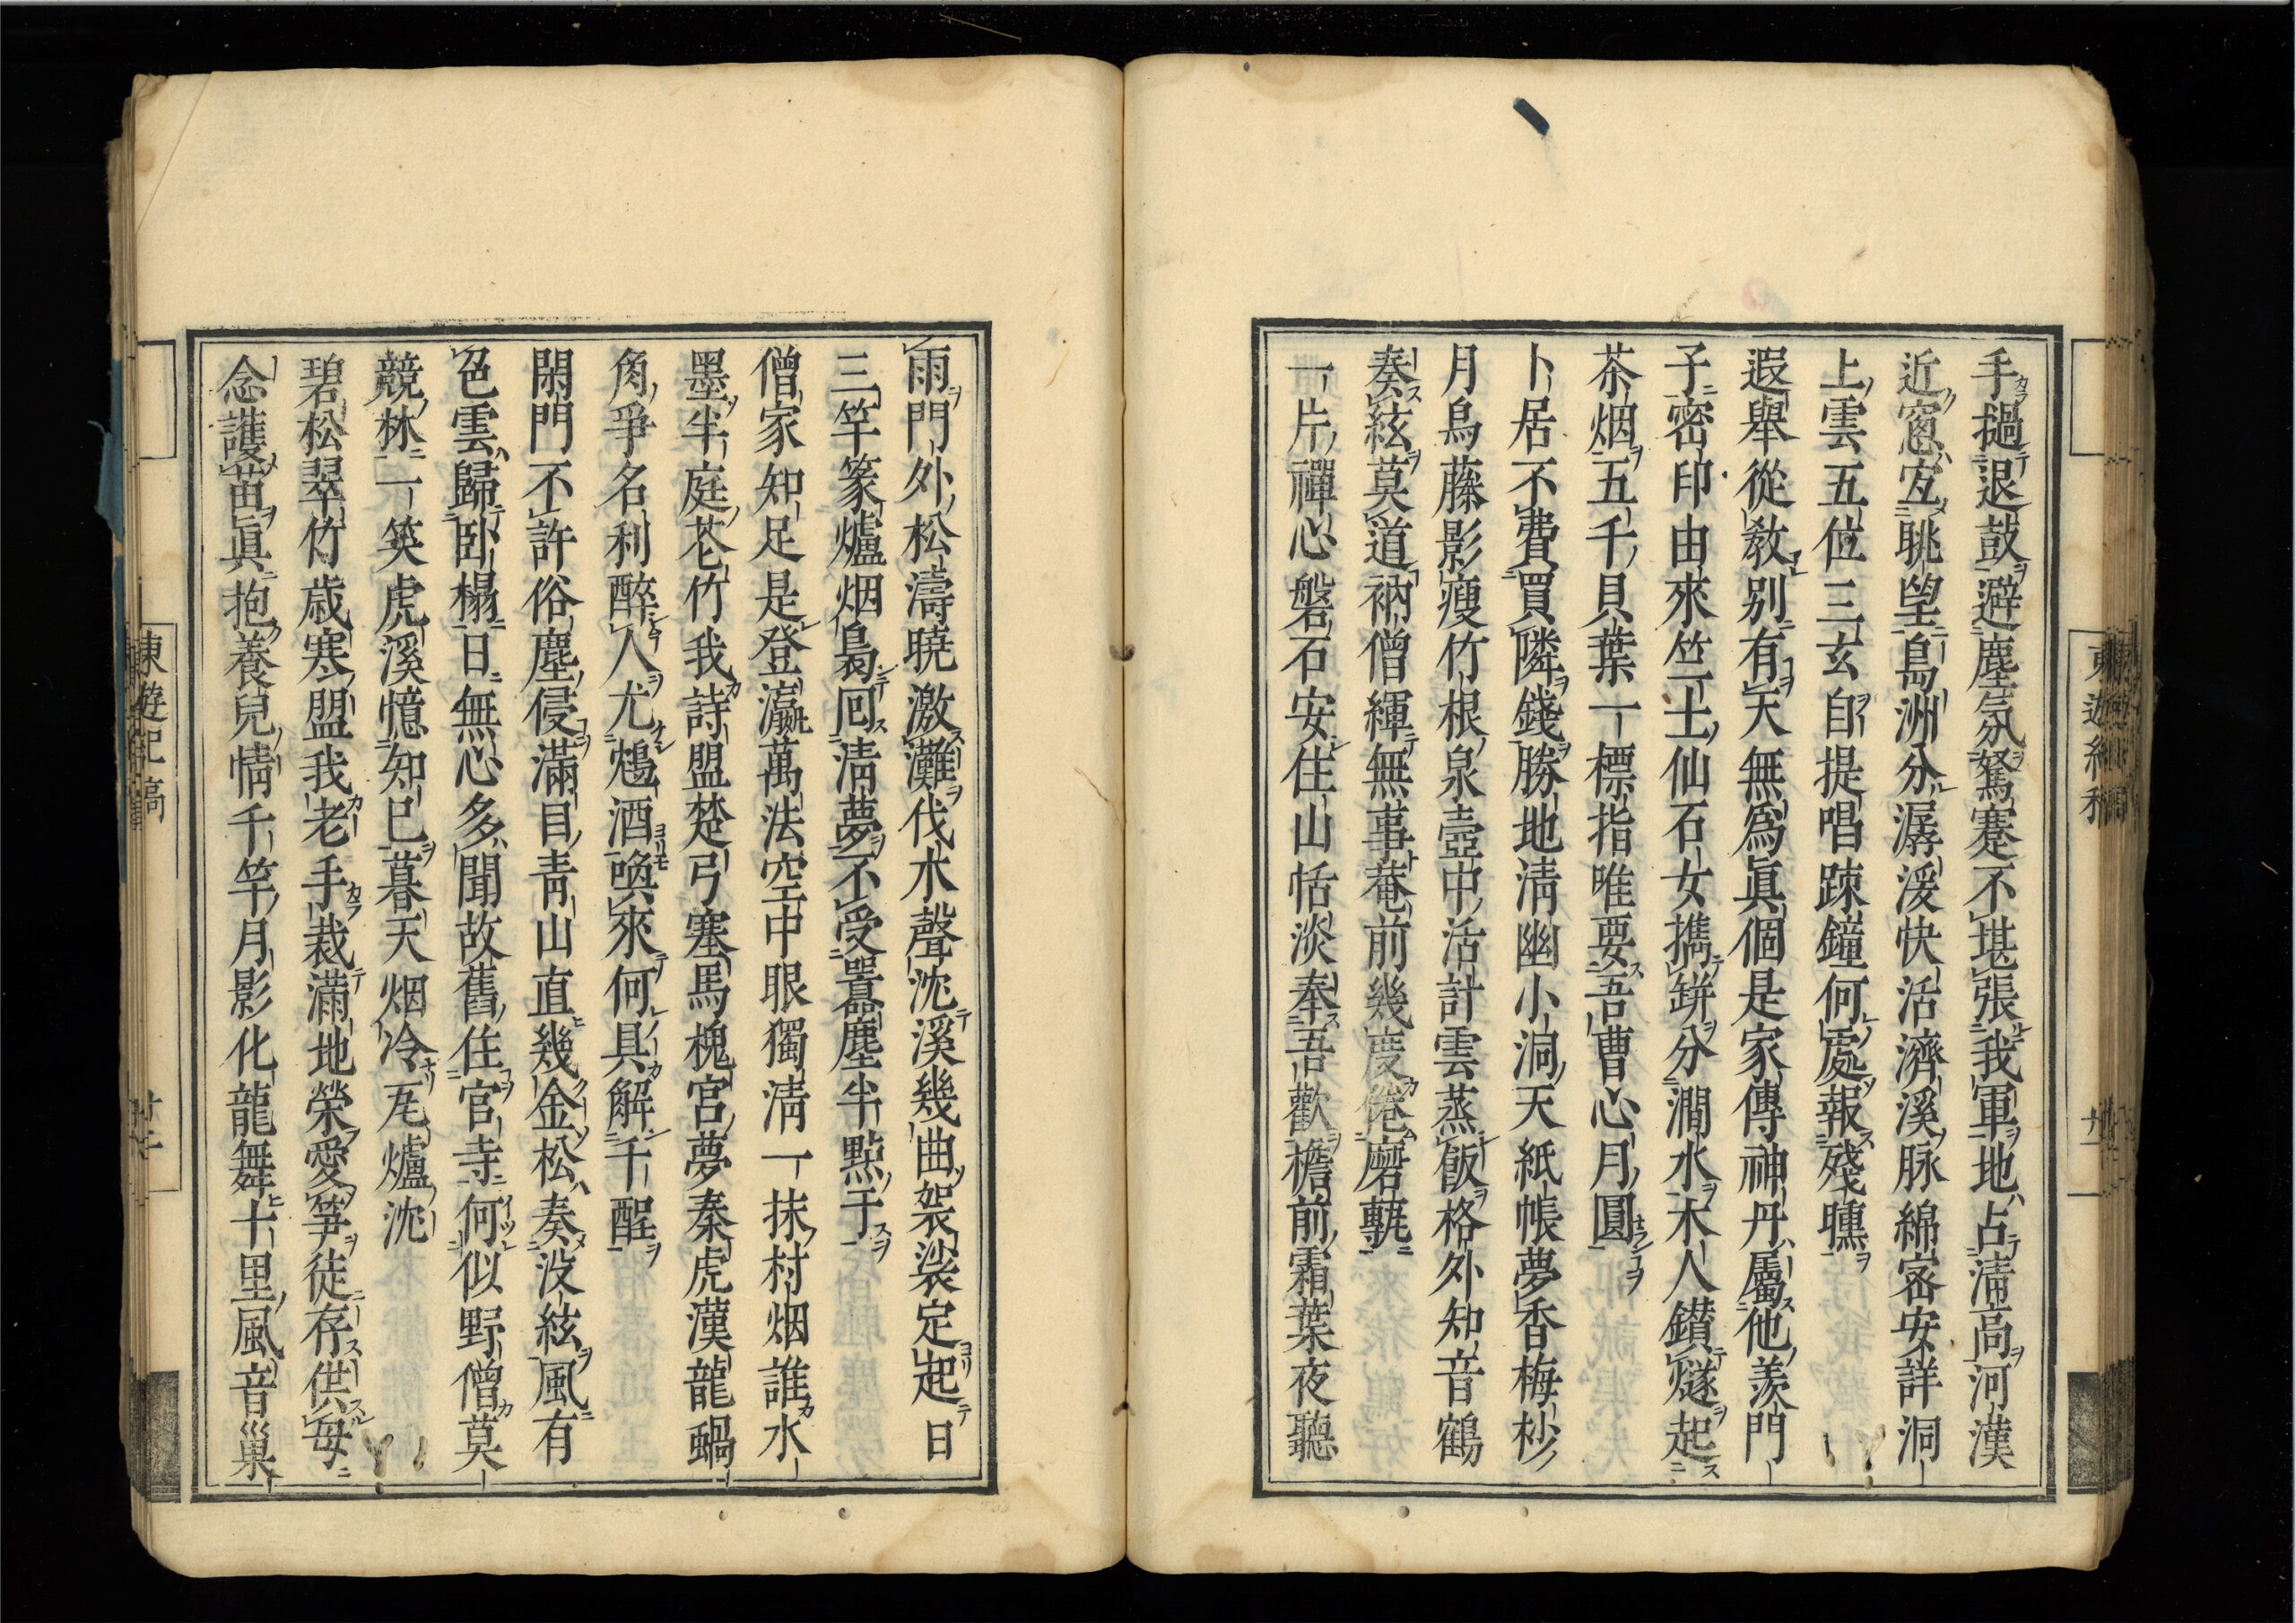 手撾退鼓避塵氛駑蹇不堪張我軍地占清高河漢
近窓宜眺望島洲分潺湲快活濟溪脉綿密安詳洞
上雲五位三玄自提唱踈鐘何處報殘曛
遐舉從教別有天無爲眞個是家傳神丹屬他羨門
子密印由來竺土仙石女擕缾分澗水木人鑚燧起
茶烟五千貝葉一標指唯要吾曹心月圓
卜居不費買隣錢勝地淸幽小洞天紙帳夢香梅杪
月烏藤影瘦竹根泉壺中活計雲蒸飯格外知音鶴
奏絃莫道衲僧渾無事菴前幾度倦磨甎
一片禪心磐石安住山恬淡奉吾歡檐前霜葉夜聽
雨門外松濤曉激灘伐木聲沈溪幾曲袈裟定起日
三竿篆爐烟裊回淸夢不受囂塵半點于
僧家知足是登瀛萬法空中眼獨淸一抹村烟誰水
墨半庭苍竹我詩盟楚弓塞馬槐宮夢秦虎漢龍蝸
角爭名利醉人尤鴆酒喚來何具解千酲
閑門不許俗塵侵滿目靑山直幾金松奏沒絃風有
色雲歸臥榻日無心多聞故舊住官寺何似野僧莫
競林一笑虎溪憶知巳暮天烟冷瓦爐沈
碧松翠竹歳寒盟我老手裁滿地榮愛笋徒存供母
念護苗眞抱養兒情千竿月影化龍舞十里風音巢
東遊紀稿
東遊紀稿